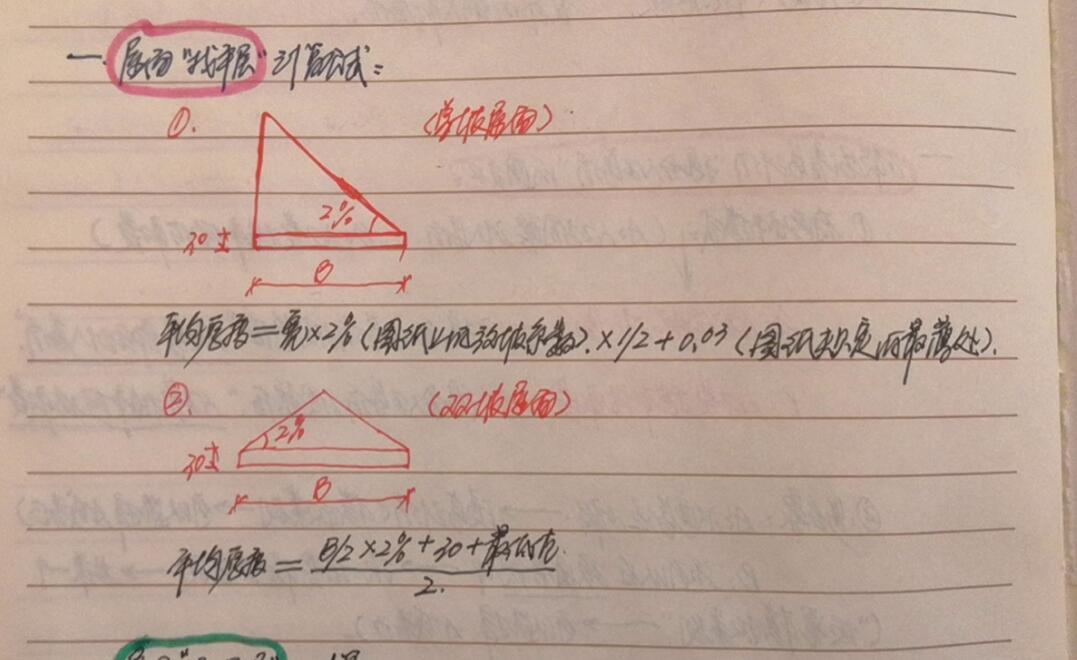 一. 屋面"找平层"计算公式:
①. (单坡屋面)
2%
30
B
平均厚度=宽×2%(图纸上的放坡系数).×1/2+0.03(图纸
②. (双坡屋面)
2%
30
B
平均厚度=B/2×2%+30+最低点.
2.